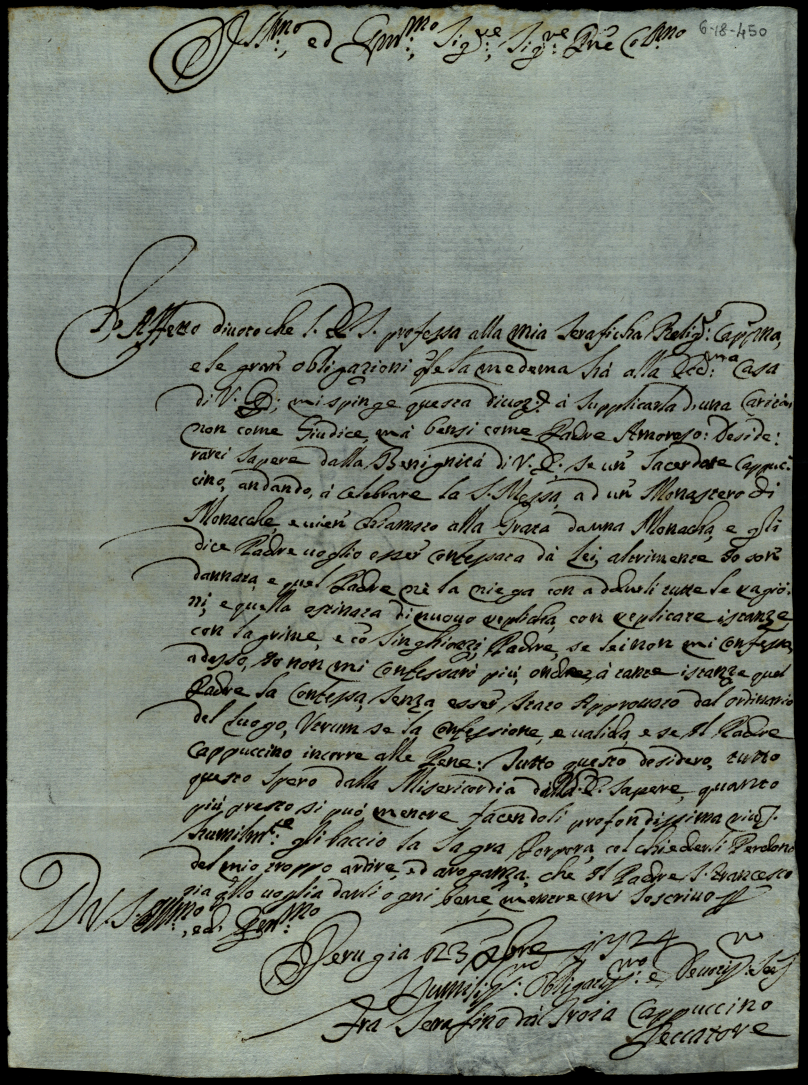 6-18-450
Ill:mo, ed Em:mo Sig:re, Sig:re Pne Col:mo
L'Affetto divoto che S. E. S. professa alla mia Seraficha Relig:e Capp:ina,
e le gran obligazioni che la medema hà alla Ecc:ma Casa
di V. E; mi spinge questa divoz: à supplicarla d'una Carità,
non come Giudice, mà bensi come Padre Amoroso: Deside:
rarei sapere dalla Benignità di V. E. se un Sacerdote Cappuc:
cino, andando, à Celebrare la S. Messa, ad un Monastero di
Monache, e vien Chiamato alla Grata da una Monacha, e gli
dice Padre voglio esser Confessata dà Lei, altrimente Io son
dannata, e quel Padre nè la niega con addurli tutte le ragio:
ni, e quella ostinata di nuovo replicha, con replicare istanze
con lagrime, e cò Singhiozzi, Padre, se lei non mi Confessa,
adesso, Io non mi Confessarò più, onde, à tante istanze quel
Padre la Confessa, Senza esser Stato Approvato dal Ordinario
del Luogo, Utrum se la Confessione, e valida, e se Il Padre
Cappuccino incorre alle Pene: Tutto questo desidero, tutto
questo Spero dalla Misericordia dalla E. Sapere, quanto
più presto si può, mentre facendoli profondissima
humilm:te gli baccio la Sagra Porpora, col chiederli Perdono
del mio troppo ardire, ed aroganza, che Il Padre S. Francesco
gia allo voglia darli ogni bene, mentre mi Soscrivo
D V. S. Ill:mo, ed: Rev:mo
Perugia 23 Xbre 1724
Humiliss:mo Obligatiss:mo e, Devotiss:mo Ser:
Fra Serafino dà Troia Cappuccino
Peccatore